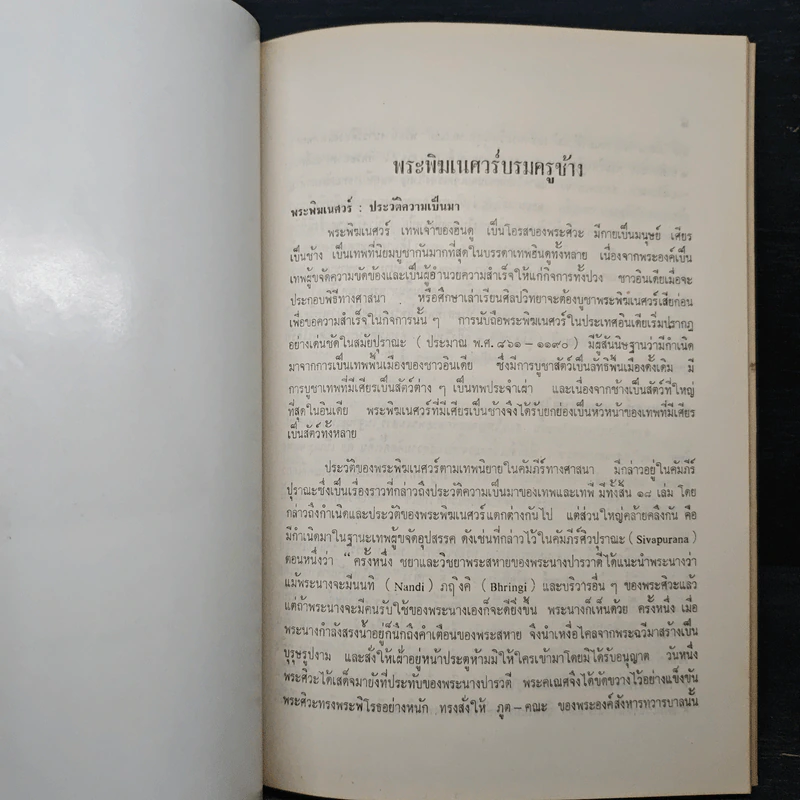 พระพิฆเนศวร์บรมครูช้าง
พระพิฆเนศวร์ : ประวัติความเป็นมา
พระพิฆเนศวร์ เทพเจ้าของฮินดู เป็นโอรสของพระศิวะ มีกายเป็นมนุษย์ เศียร
เป็นช้าง เป็นเทพที่นิยมบูชากันมากที่สุดในบรรดาเทพฮินดูทั้งหลาย เนื่องจากพระองค์เป็น
เทพผู้ขจัดความขัดข้องและเป็นผู้อำนวยความสำเร็จให้แก่กิจการทั้งปวง ชาวอินเดียเมื่อจะ
ประกอบพิธีทางศาสนา หรือศึกษาเล่าเรียนศิลปวิทยาจะต้องบูชาพระพิฆเนศวร์เสียก่อน
เพื่อขอความสำเร็จในกิจการนั้น ๆ การนับถือพระพิฆเนศวร์ในประเทศอินเดียเริ่มปรากฏ
อย่างเด่นชัดในสมัยปุราณะ ( ประมาณ พ.ศ. ๘๖๑ – ๑๑๙๐ ) มีผู้สันนิษฐานว่ามีกำเนิด
มาจากการเป็นเทพพื้นเมืองของชาวอินเดีย ซึ่งมีการบูชาสัตว์เป็นลัทธิพื้นเมืองดั้งเดิม มี
การบูชาเทพที่มีเศียรเป็นสัตว์ต่าง ๆ เป็นเทพประจำเผ่า และเนื่องจากช้างเป็นสัตว์ที่ใหญ่
ที่สุดในอินเดีย พระพิฆเนศวร์ที่มีเศียรเป็นช้างจึงได้รับยกย่องเป็นหัวหน้าของเทพที่มีเศียร
เป็นสัตว์ทั้งหลาย
ประวัติของพระพิฆเนศวร์ตามเทพนิยายในคัมภีร์ทางศาสนา มีกล่าวอยู่ในคัมภีร์
ปุราณะซึ่งเป็นเรื่องราวที่กล่าวถึงประวัติความเป็นมาของเทพและเทพี มีทั้งสิ้น ๑๘ เล่ม โดย
กล่าวถึงกำเนิดและประวัติของพระพิฆเนศวร์แตกต่างกันไป แต่ส่วนใหญ่คล้ายคลึงกัน คือ
มีกำเนิดมาในฐานะเทพผู้ขจัดอุปสรรค ดังเช่นที่กล่าวไว้ในคัมภีร์ศิวปุราณะ ( Sivapurana )
ตอนหนึ่งว่า " ครั้งหนึ่ง ชยาและวิชยาพระสหายของพระนางปารวาตีได้แนะนำพระนางว่า
แม้พระนางจะมีนนทิ ( Nandi ) ภฤิงคิ ( Bhringi ) และบริวารอื่น ๆ ของพระศิวะแล้ว
แต่ถ้าพระนางจะมีคนรับใช้ของพระนางเองก็จะดียิ่งขึ้น พระนางก็เห็นด้วย ครั้งหนึ่ง เมื่อ
พระนางกำลังสรงน้ำอยู่ก็นึกถึงคำเตือนของพระสหาย จึงนำเหงื่อไคลจากพระฉวีมาสร้างเป็น
บุรุษรูปงาม และสั่งให้เฝ้าอยู่หน้าประตูห้ามมิให้ใครเข้ามาโดยมิได้รับอนุญาต วันหนึ่ง
พระศิวะได้เสด็จมายังที่ประทับของพระนางปารวตี พระคเณศจึงได้ขัดขวางไว้อย่างแข็งขัน
พระศิวะทรงพระพิโรธอย่างหนัก ทรงสั่งให้ ภูต – คณะ ของพระองค์สังหารทวารบาลนั้น